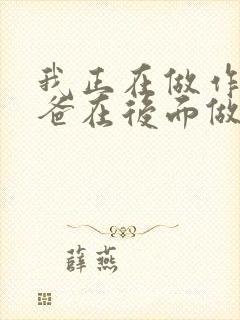 我正在做作
爸在後面做
薛燕